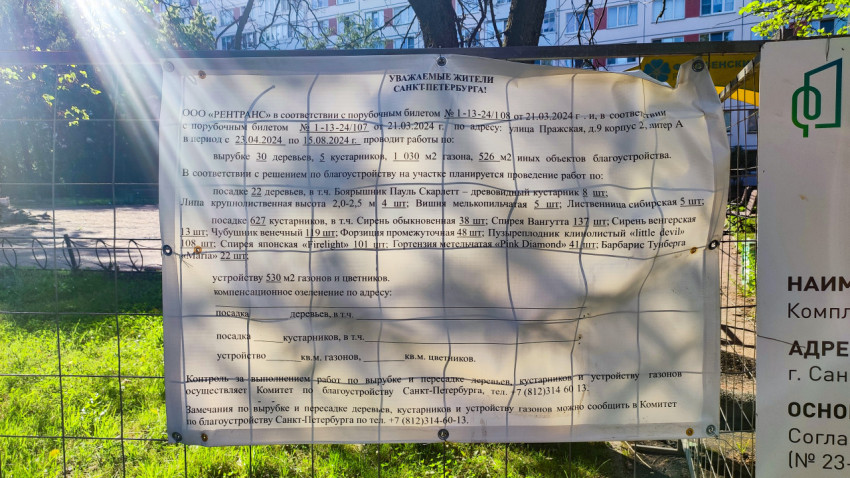 УВАЖАЕМЫЕ ЖИТЕЛИ
САНКТ-ПЕТЕРБУРГА!
ООО «РЕНТРАНС» в соответствии с порубочным билетом № 1-13-24/108 от 21.03.2024 г. и, в соответствии
с порубочным билетом № 1-13-24/107 от 21.03.2024 г., по адресу: улица Пражская, д.9 корпус 2, литер А
в период с 23.04.2024 по 15.08.2024 г. проводит работы по:
вырубке 30 деревьев, 5 кустарников, 1 030 м2 газона, 526 м2 иных объектов благоустройства.
В соответствии с решением по благоустройству на участке планируется проведение работ по:
посадке 22 деревьев, в т.ч. Боярышник Пауль Скарлетт – древовидный кустарник 8 шт;
Липа крупнолиственная высота 2,0-2,5 м 4 шт; Вишня мелкопильчатая 5 шт; Лиственница сибирская 5 шт;
посадке 627 кустарников, в т.ч. Сирень обыкновенная 38 шт; Спирея Вангутта 137 шт; Сирень венгерская
13 шт; Чубушник венечный 119 шт; Форзиция промежуточная 48 шт; Пузыреплодник клинолистный «little devil»
108 шт; Спирея японская «Firelight» 101 шт; Гортензия метельчатая «Pink Diamond» 41 шт; Барбарис Тунберга
«Maria» 22 шт;
устройству 530 м2 газонов и цветников.
компенсационное озеленение по адресу:
посадка деревьев, в т.ч.
посадка кустарников, в т.ч.
устройство кв.м. газонов, кв.м. цветников.
Контроль за выполнением работ по вырубке и пересадке деревьев, кустарников и устройству газонов
осуществляет Комитет по благоустройству Санкт-Петербурга, тел. +7 (812)314-60-13.
Замечания по вырубке и пересадке деревьев, кустарников и устройству газонов можно сообщить в Комитет
по благоустройству Санкт-Петербурга по тел. +7 (812)314-60-13.
НАИМ
Компл
АДРЕ
г. Сан
ОСНО
Согла
(№ 23-